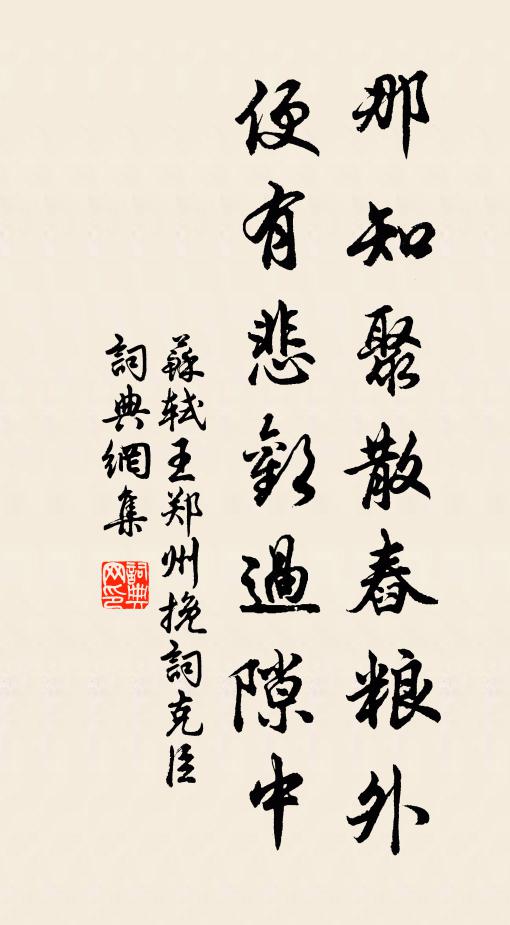 那知聚散舂粮外
便有悲歡過隙中
蘇軾王郑州挽詞克臣
詞典網集
詞典
网印